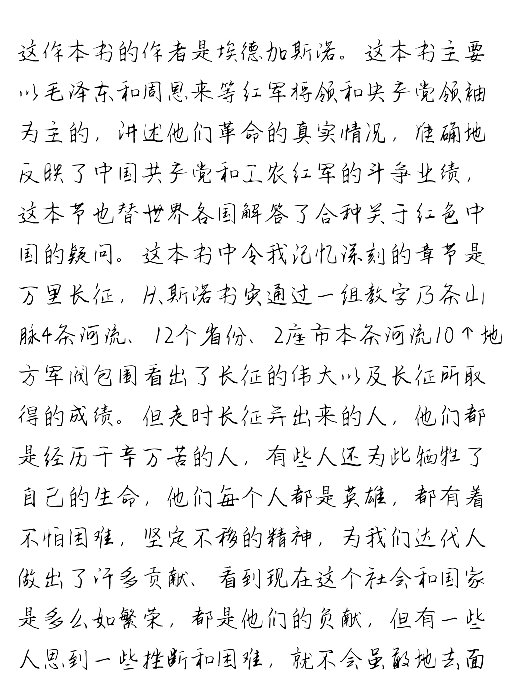 这作本书的作者是埃德加斯诺。这本书主要
以毛泽东和周恩来等红军将领和央产党领袖
为主的，讲述他们革命的真实情况，准确地
反映了中国共产党和工农红军的斗争业绩，
这本节也替世界各国解答了合种关于红色中
国的疑问。这本书中令我记忆深刻的章节是
万里长征，从斯诺书实通过一组数字乃条山
脉4条河流、12个省份、2座市本条河流10个地
方军阀包围看出了长征的伟大以及长征所取
得的成绩。但走时长征弄出来的人，他们都
是经历千辛万苦的人，有些人还为此牺牲了
自己的生命，他们每个人都是英雄，都有着
不怕困难，坚定不移的精神，为我们达代人
做出了许多贡献、看到现在这个社会和国家
是多么如繁荣，都是他们的负献，但有一些
人思到一些挫断和困难，就不会虽敢地去面